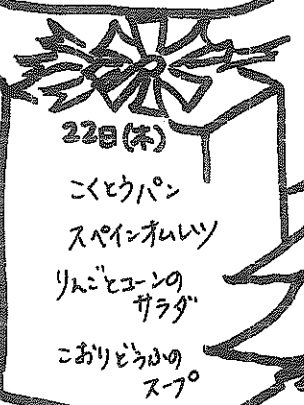 22日(木)
こくとうパン
スペインオムレツ
りんごとコーンの
サラダ
こおりどうふの
スープ